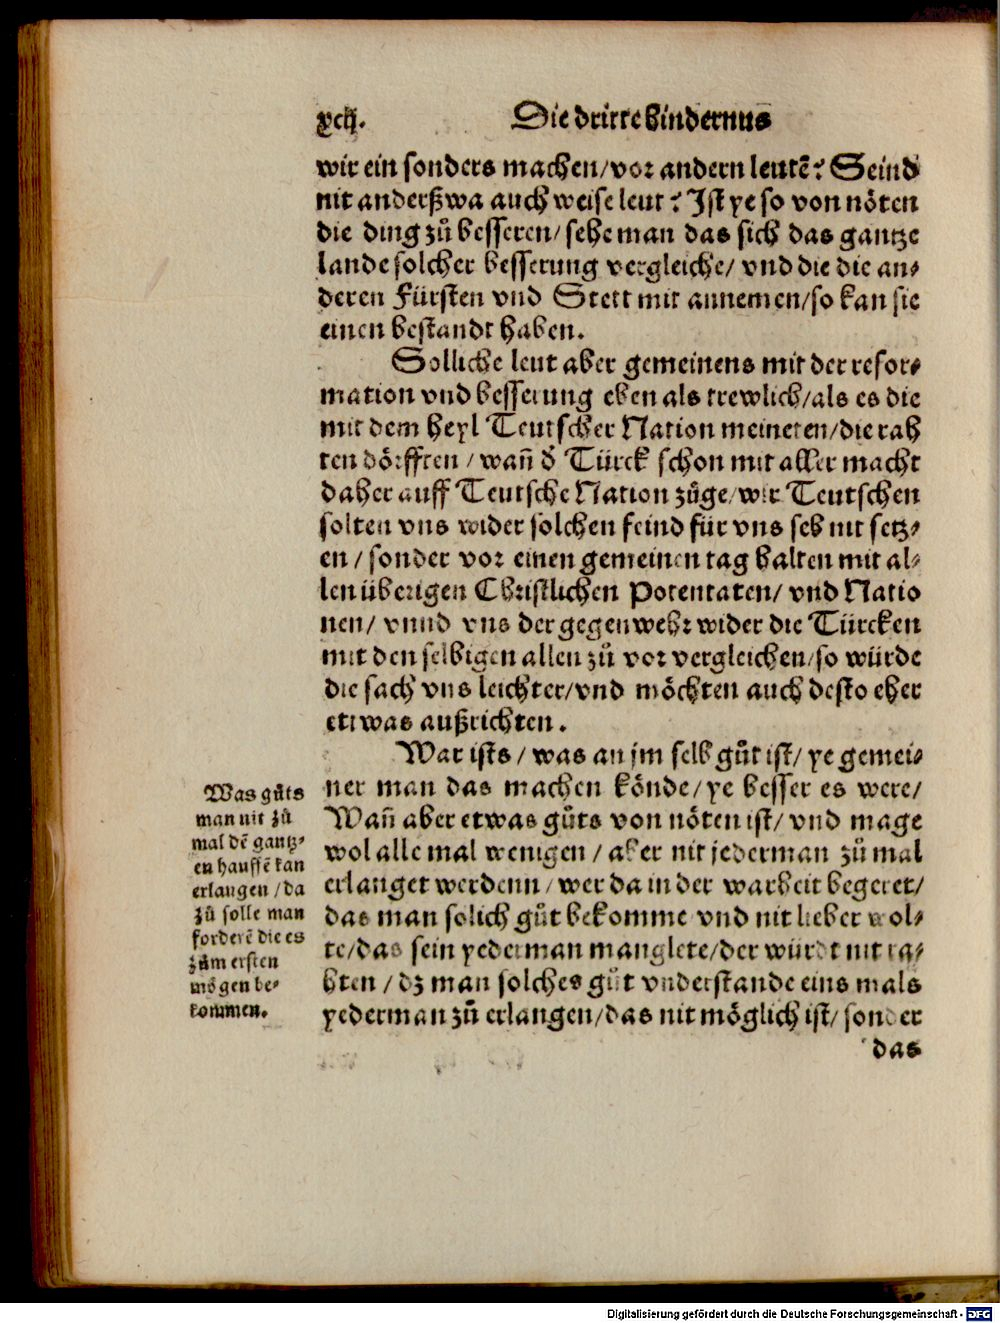 xcij.
Die dritte hindernus
wir ein sonders machen/vor andern leutẽ? Seind
nit anderßwa auch weise leut? Jst ye so von nöten
die ding zů besseren/sehe man das sich das gantze
lande solcher besserung vergleiche/ vnd die die an⸗
deren Fürsten vnd Stett mit annemen/so kan sie
einen bestandt haben.
Solliche leut aber gemeinens mit der refor⸗
mation vnd besserung eben als trewlich/als es die
mit dem heyl Teutscher Nation meineten/die rah
ten dörfften/wañ d̕ Türck schon mit aller macht
daher auff Teutsche Nation züge/wir Teutschen
solten vns wider solchen feind für vns seb nit setz⸗
en/sonder vor einen gemeinen tag halten mit al⸗
len überigen Christlichen Potentaten/ vnd Natio
nen/ vnnd vns der gegenwehr wider die Türcken
mit den selbigen allen zů vor vergleichen/so würde
die sach vns leichter/vnd möchten auch desto eher
ettwas außrichten.
War ists/was an jm selb gůt ist/ye gemei⸗
ner man das machen könde/ye besser es were/
Wañ aber etwas gůts von nöten ist/vnd mage
wol alle mal wenigen/aber nit jederman zů mal
erlanget werdenn/wer da in der warheit begeret/
das man solich gůt bekomme vnd nit lieber wol⸗
te/das sein yederman manglete/der würdt nit ra⸗
hten/dz man solches gůt vnderstande eins mals
yederman zů erlangen/das nit möglich ist/sonder
das
Was gůts
man nit zů
mal dẽ gantz⸗
en hauffẽ kan
erlangen/da
zů solle man
forderẽ die es
zům ersten
mögen be⸗
kommen.
Digitalisierung gefördert durch die Deutsche Forschungsgemeinschaft - DFG